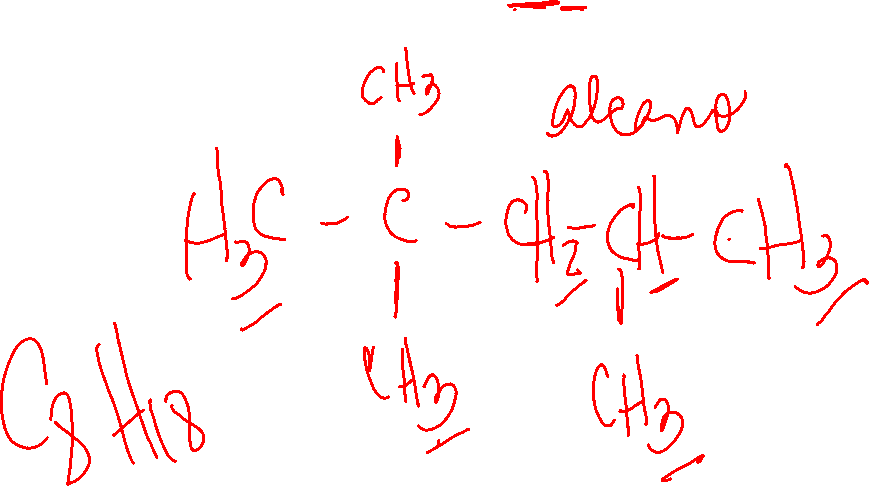 CH3
alcano
H3C - C - CH2 - CH - CH3
CH3 CH3
C8H18